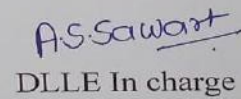 A.S.Sawart
DLLE In charge